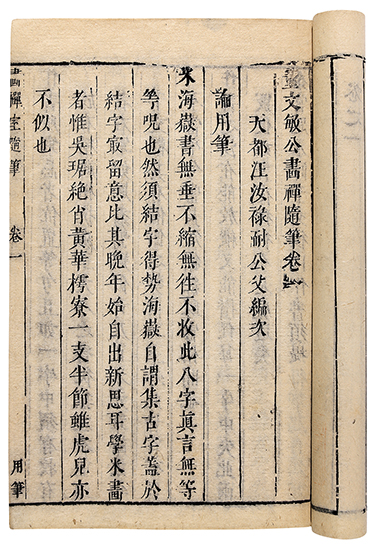 董文敏公畵禪隨筆卷一
天都汪汝祿耐公父編次
論用筆
米海嶽書無垂不縮無徃不收此八字眞言無等
等呪也然須結字得勢海嶽自謂集古字蓋於
結字㝡留意比其晚年始自出新思耳學米畵
者惟吳琚絶肖黃華樗寮一支半節雖虎兒亦
不似也
畵禪室隨筆 卷一
用筆